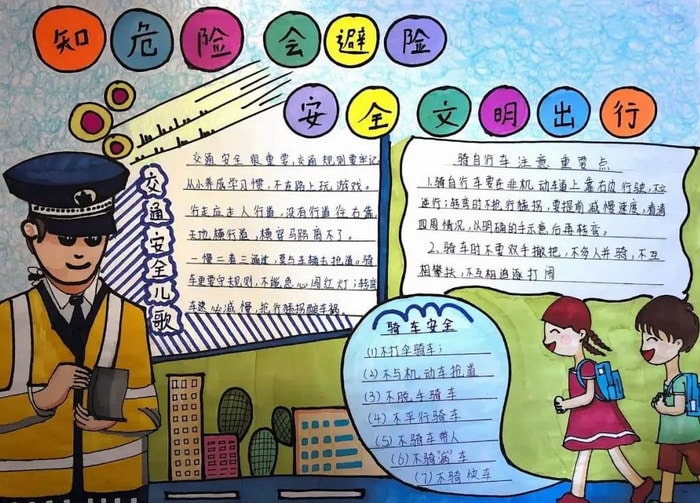 知危险 会避险
安全文明出行
交通安全儿歌
交通安全很重要,交通规则要牢记
从小养成学习惯,不在路上玩游戏。
行走应走人行道,没有行道往右靠
天地横行道,横穿马路离不了。
一慢二看三通过,莫与车辆去抢道。骑
车更要守规则,不能急心闯红灯;转
车速必减慢,抢行猛拐酿车祸。
骑自行车注意重要点
1.骑自行车要在非机动车道上靠右边行驶,不
逆行;转弯时不抢行猛拐,要提前减慢速度,看清
四周情况,从明确的手示意后再转弯;
2.骑车时不要双手撒把,不多人并骑,不互
相攀扶,不互相追逐打闹
骑车安全
(1)不打伞骑车;
(2)不与机动车抢道
(3)不脱手骑车
(4)不平行骑车
(5)不骑车带人
(6)不骑“病”车
(7)不骑快车